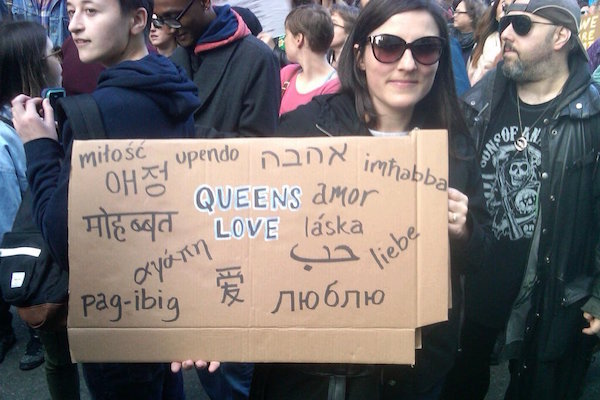 miłość upendo אהבה imħabba
애정 QUEENS amor
मोहब्बत LOVE láska
αγάπη 爱 حب liebe
pag-ibig люблю
SONS OF AN